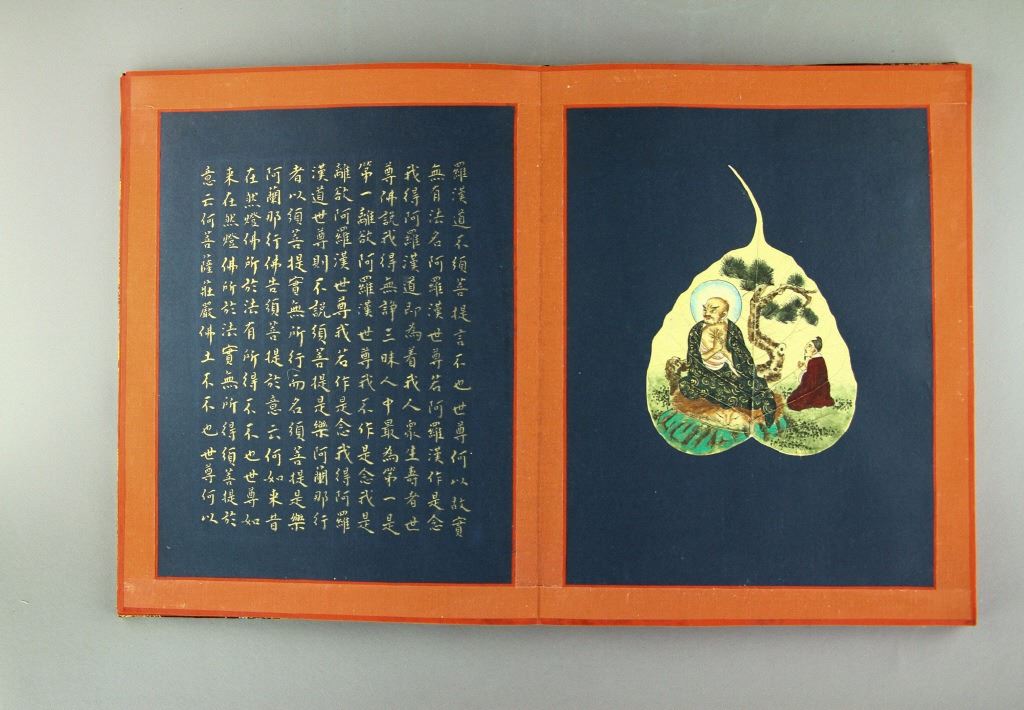 羅漢道不須菩提言不也世尊何以故實
無有法名阿羅漢世尊若阿羅漢作是念
我得阿羅漢道即為着我人衆生壽者世
尊佛說我得無諍三昧人中最為第一是
第一離欲阿羅漢世尊我不作是念我是
離欲阿羅漢世尊我若作是念我得阿羅
漢道世尊則不說須菩提是樂阿蘭那行
者以須菩提實無所行而名須菩提是樂
阿蘭那行佛告須菩提於意云何如来昔
在然燈佛所於法有所得不不也世尊如
来在然燈佛所於法實無所得須菩提於
意云何菩薩莊嚴佛土不不也世尊何以